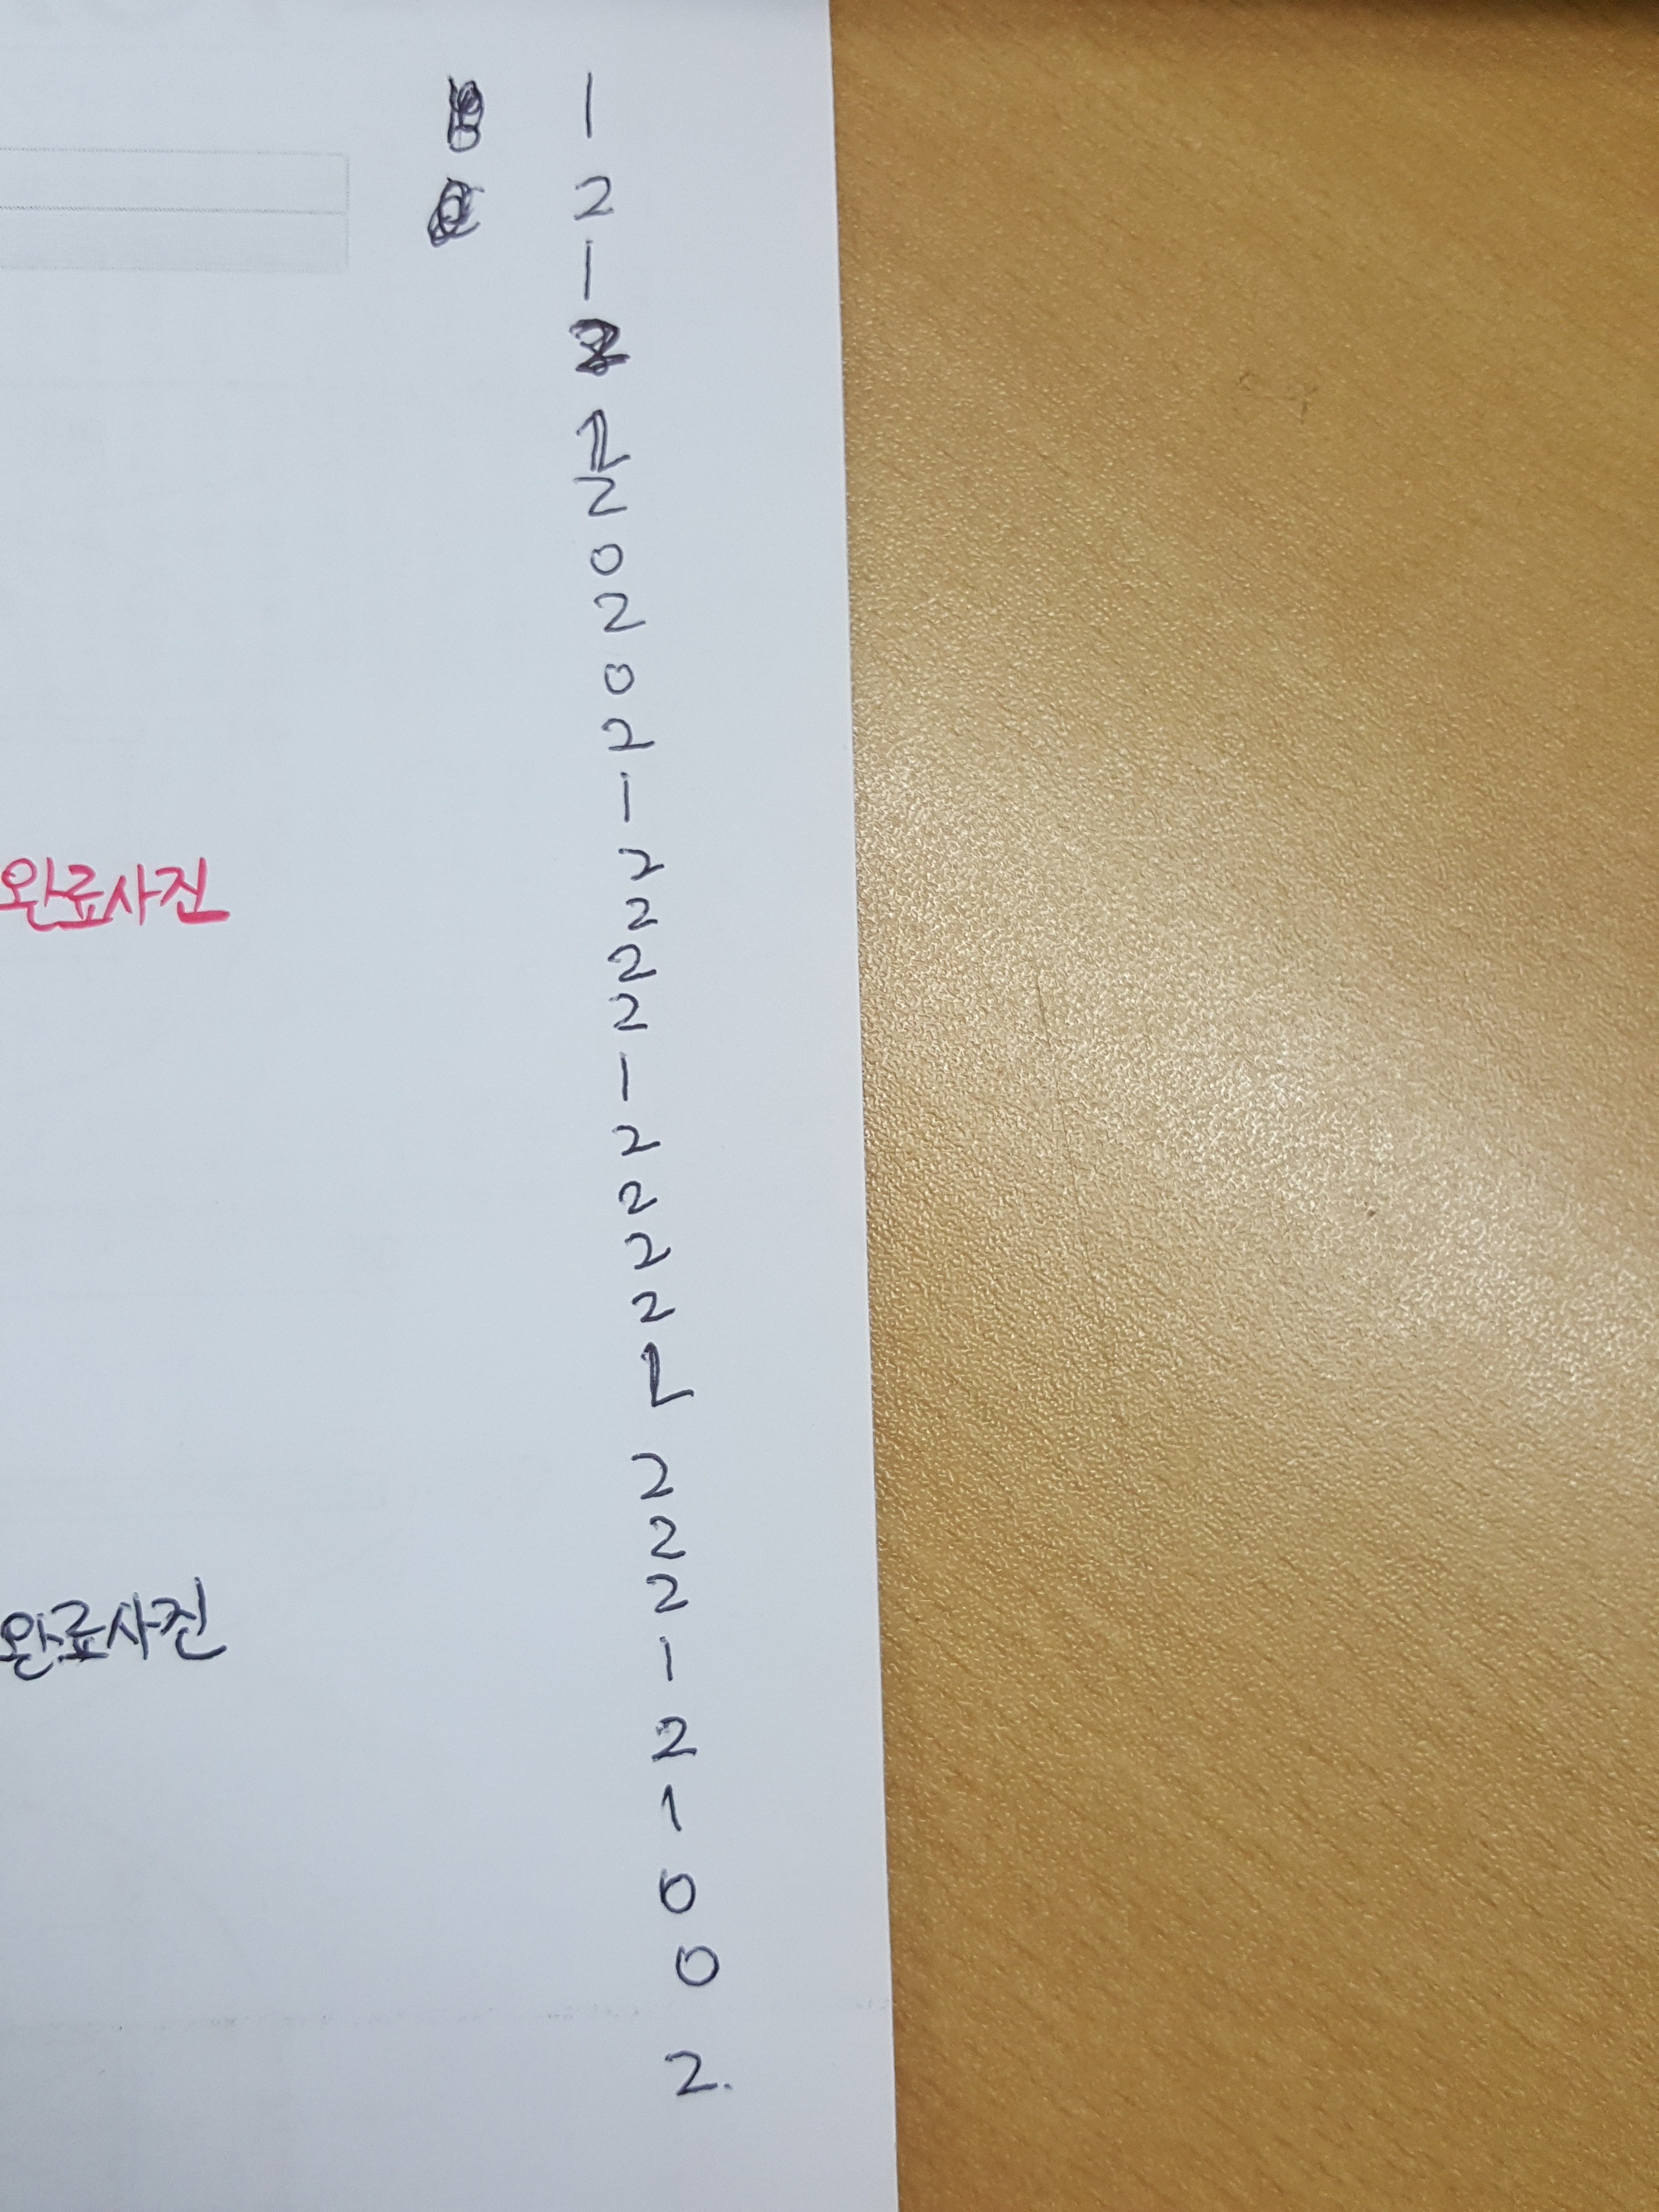 1
2
1
2
0
2
0
2
1
2
완료사진
2
2
2
1
2
2
2
2
2
2
2
완료사진
1
2
1
0
0
2.